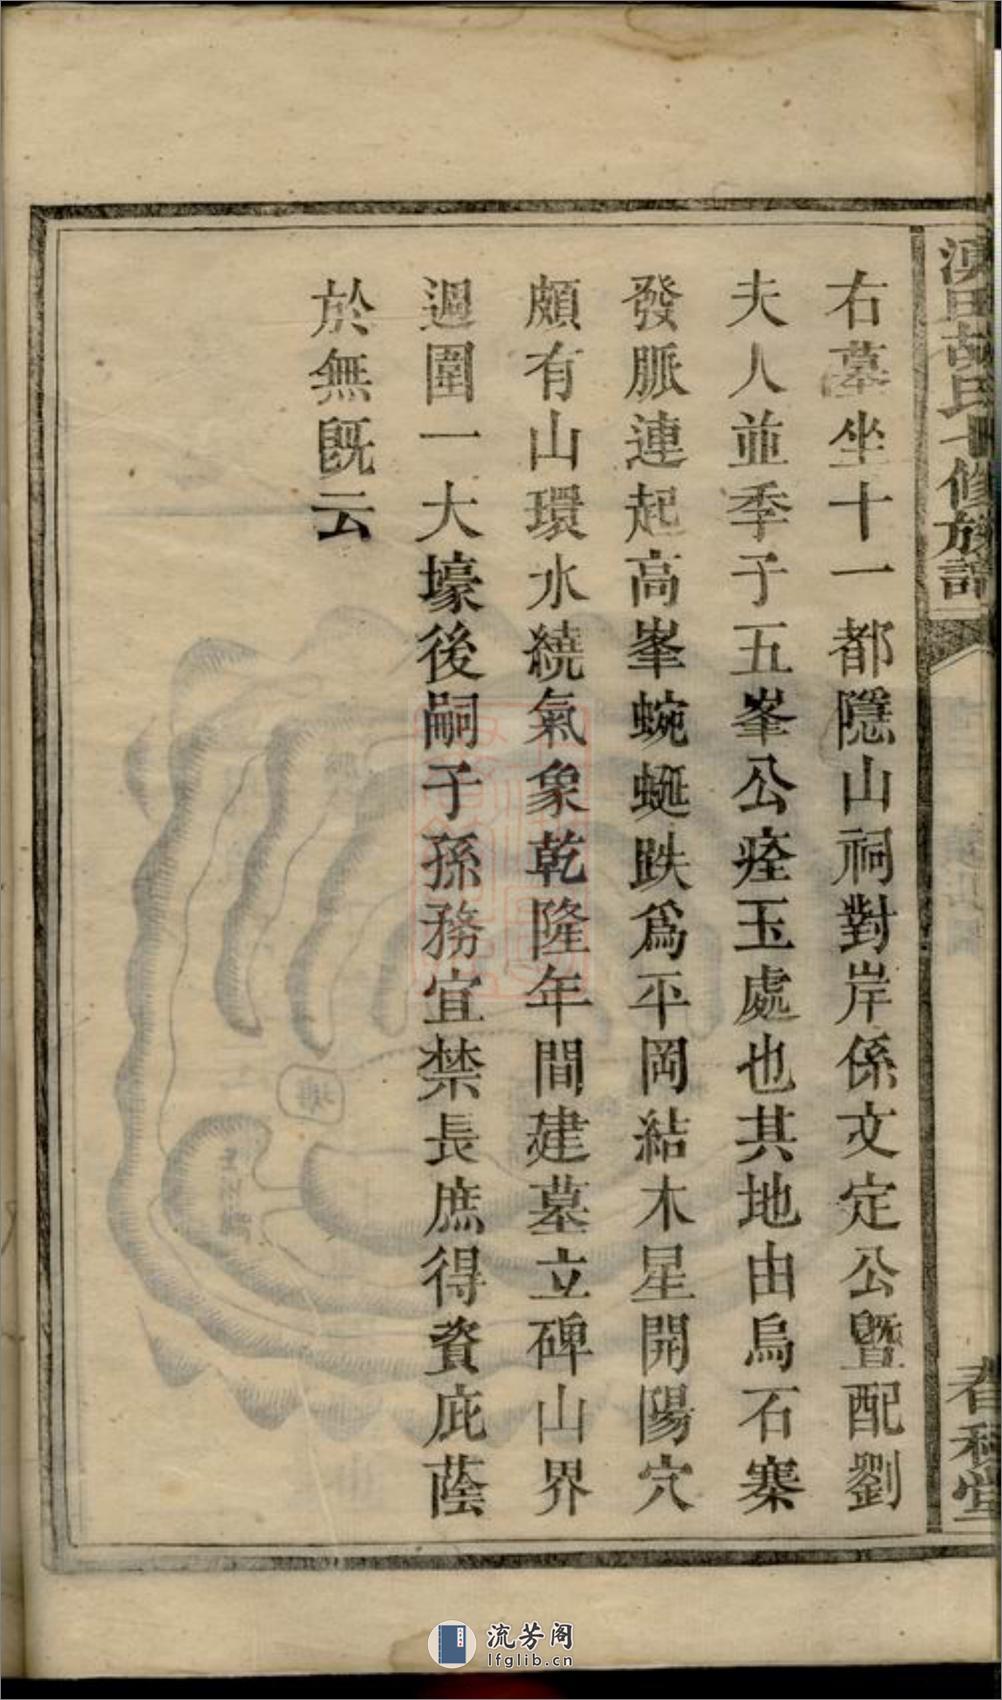 右墓坐十一都隱山祠對岸係文定公暨配劉
夫人並季子五峯公瘞玉處也其地由烏石寨
發脈連起高峯蜿蜒跌爲平岡結木星開陽穴
頗有山環水繞氣象乾隆年間建墓立碑山界
週圍一大壕後嗣子孫務宜禁長庶得資庇蔭
於無旣云
田胡氏七修族譜
春秋堂
流芳阁
lfglib.cn